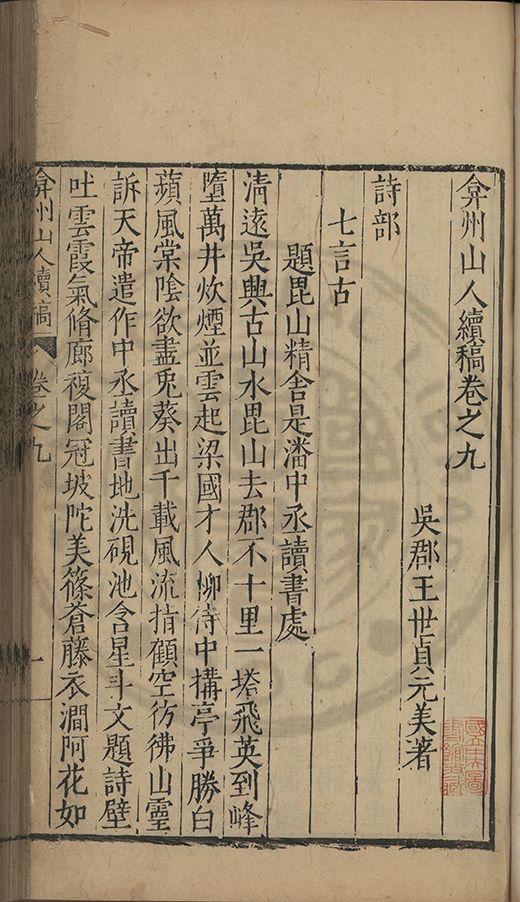 弇州山人續稿卷之九
吳郡王世貞元美著
詩部
七言古
題毘山精舍是潘中丞讀書處
清遠吳興古山水毘山去郡不十里一塔飛英到峰
墮萬井炊煙並雲起梁國才人柳侍中搆亭爭勝白
蘋風棠陰欲盡兎葵出千載風流指顧空彷彿山靈
訴天帝遣作中丞讀書地洗硯池含星斗文題詩壁
吐雲霞氣脩廊複閣冠坡陀美篠蒼藤衣澗阿花如
弇州山人續稿
卷之九
一